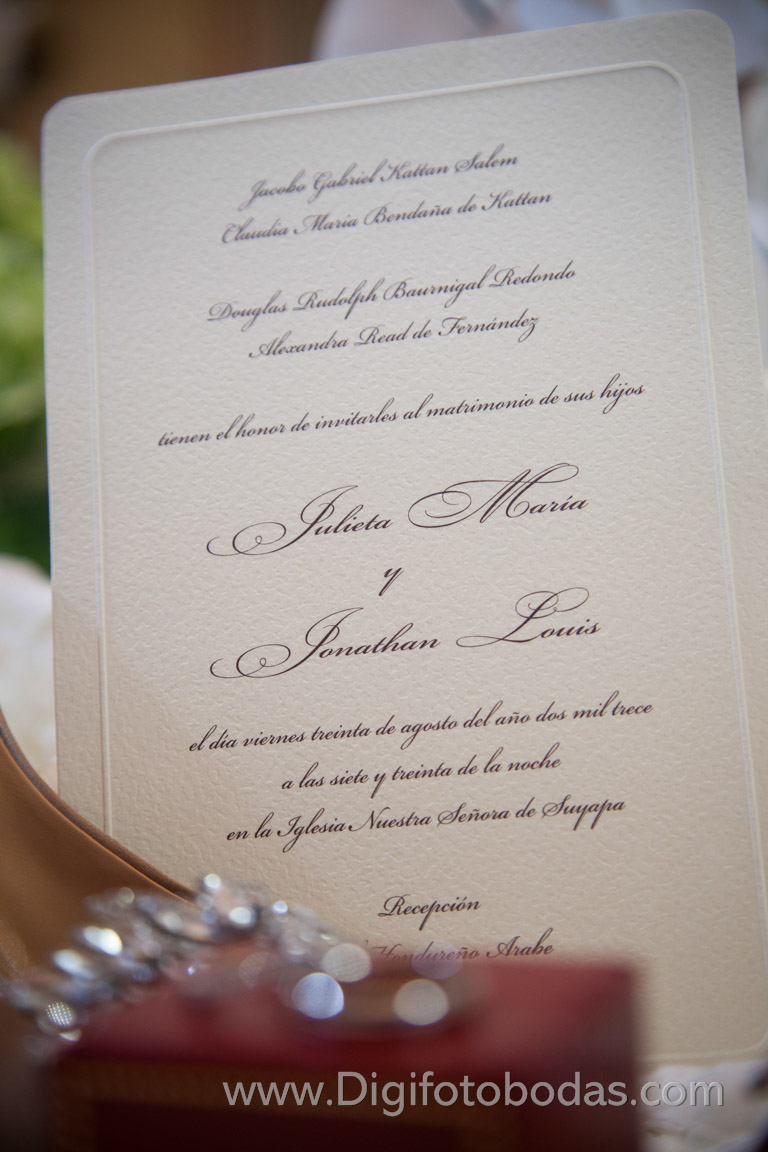 Jacobo Gabriel Kattan Salem
Claudia María Bendaña de Kattan
Douglas Rudolph Baurnigal Redondo
Alexandra Read de Fernández
tienen el honor de invitarles al matrimonio de sus hijos
Julieta María
y
Jonathan Louis
el día viernes treinta de agosto del año dos mil trece
a las siete y treinta de la noche
en la Iglesia Nuestra Señora de Suyapa
Recepción
Hondureño Arabe
www.Digifotobodas.com